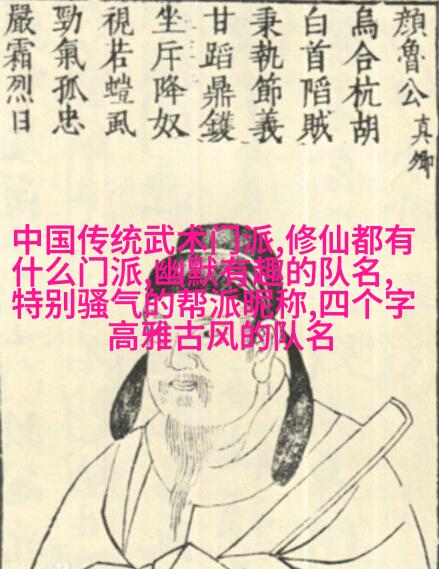 顔魯公真卿
烏合杭胡
白首陷賊
秉執節義
甘蹈鼎鑊
坐斥降奴
視若螘虱
勁氣孤忠
嚴霜烈日
中国传统武术门派,修仙都有
什么门派,幽默有趣的队名,
特别骚气的帮派昵称,四个字
高雅古风的队名